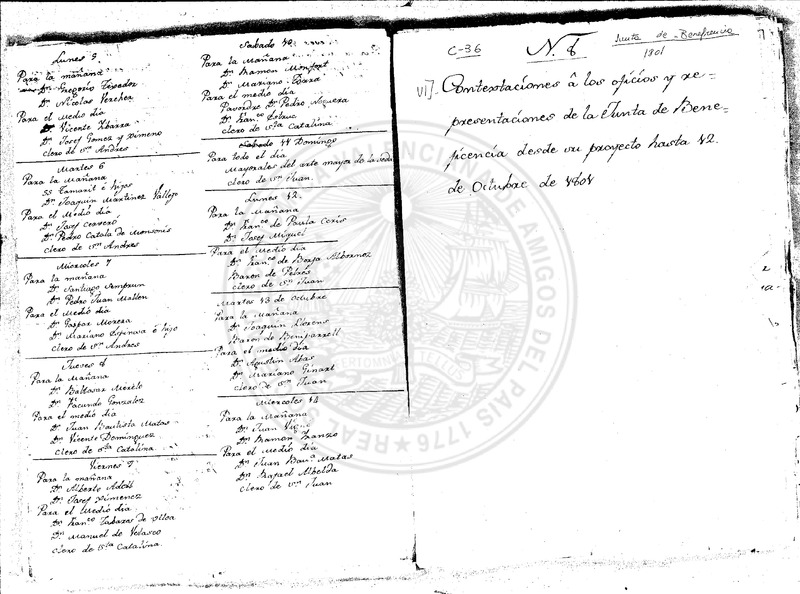 Lunes 5
Para la mañana
Dn. Gregorio Texedor
Dn. Nicolas Verchea
Para el Medio dia
Dn. Vicente Ybarra
Dn. Josef Gomez y Ximeno
clero de Sn. Andres
Martes 6
Para la Mañana
SS Tamarit è hijos
Dn. Joaquin Martinez Vallejo
Para el Medio dia
Dn. Josef Cerveró
Dn. Pedro Catala de Monsonis
clero de Sn. Andres
Miercoles 7
Para la mañana
Dn. Santiago Semprun
Dn. Pedro Juan Mallen
Para el Medio dia
Dn. Gaspar Morera
Dn. Mariano Espinosa è hijo
clero de Sn. Andres
Jueves 8
Para la Mañana
Dn. Baltasar Merelo
Dn. Facundo Gonzalez
Para el medio dia
Dn. Juan Bautista Matas
Dn. Vicente Dominguez
clero de Sta. Catalina
Viernes 9
Para la mañana
Dn. Alberto
Dn. Josef Ximenez
Para el Medio dia
Dn. Franco. Tabares de Ulloa
Dn. Manuel de Velasco
clero de Sta. Catalina.
Sabado 10
Para la Mañana
Dn. Ramon Monfort
Dn. Mariano
Para el medio dia
Pavordre Dn. Pedro Noguera
Dn. Franco. Estruc
clero de Sta. Catalina
11 Domingo
Para todo el dia
Mayorales del arte mayor de la seda
clero de Sn. Juan.
Lunes 12
Para la Mañana
Dn. Franco. de Paula Ceris
Dn. Josef Miquel
Para el Medio dia
Dn. Franco. de Borja Albornoz
Baron de Petrés
clero de Sn. Juan
Martes 13 de Octubre
Para la Mañana
Dn. Joaquin Llorens
Baron de Beniparrell
Para el medio dia
Dn. Agustin Abas
Dn. Mariano Ginart
clero de Sn. Juan
Miercoles 14
Para la Mañana
Dn. Juan
Dn. Ramon
Para el Medio dia
Dn. Juan Bau.ª Matas
Dn. Rafael Albelda
clero de Sn. Juan
C-36
N. 8
Junta de Beneficencia
1801
VI]. Contextaciones à los oficios y re-
presentaciones de la Junta de Bene-
ficencia desde su proyecto hasta 12.
de Octubre de 1801